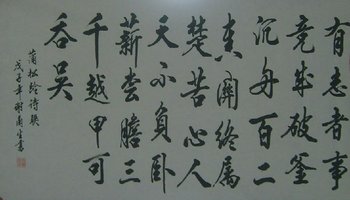 有志者事
竟成破釜
沉舟百二
秦关终属
楚苦心人
天不负卧
薪尝胆三
千越甲可
吞吴
蒲松龄诗联
戊子年